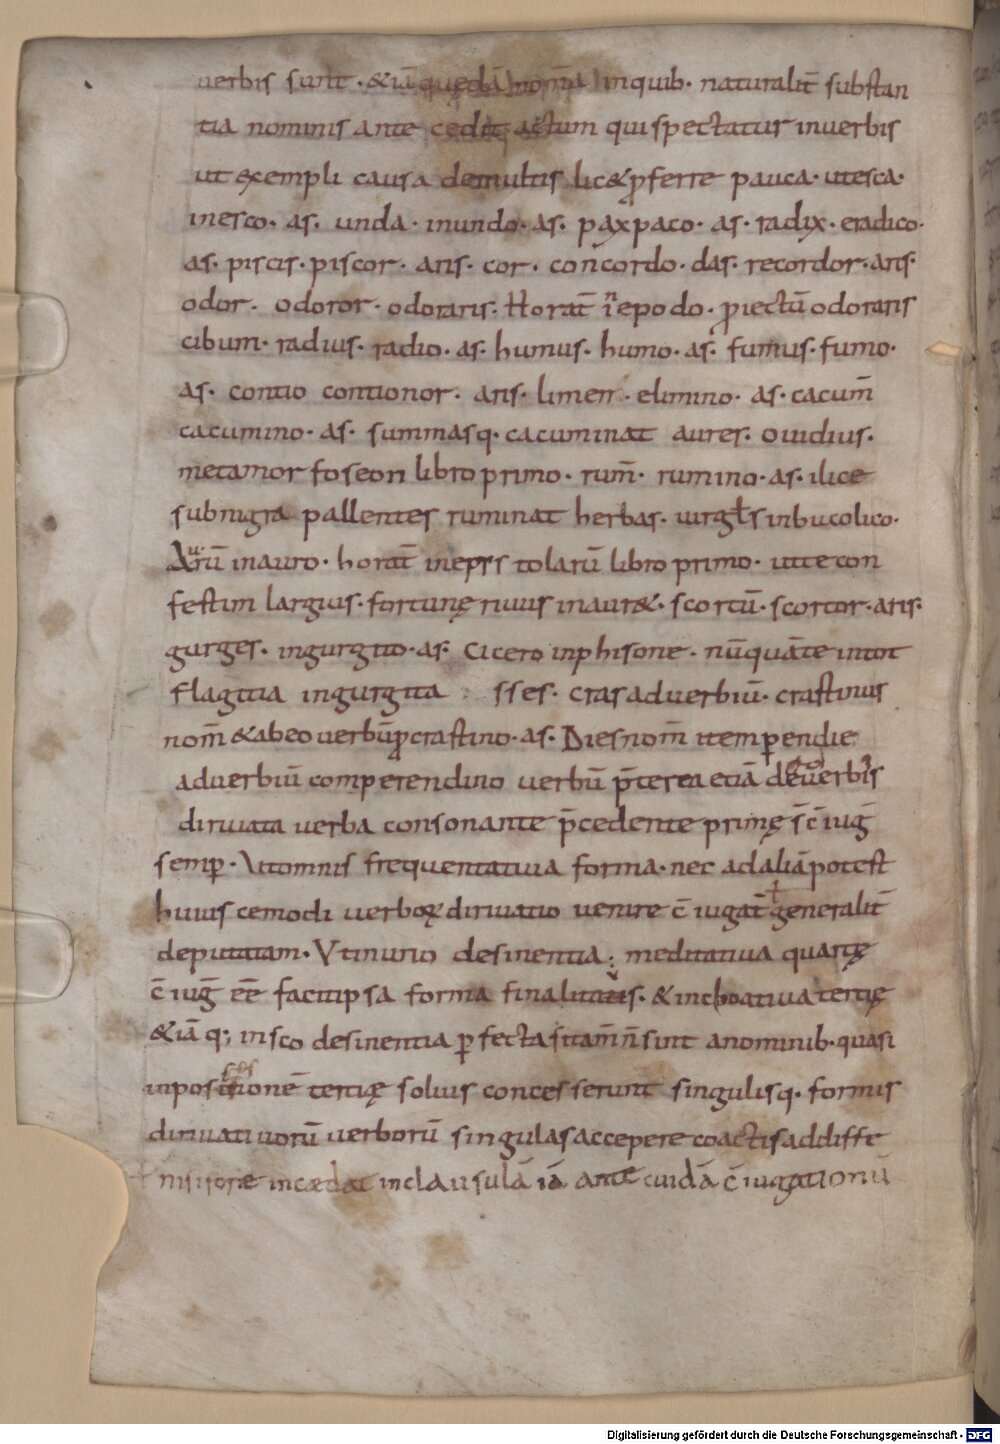 uerbis sunt · &iā quędā nom̄a inquib · naturalit̄ substan
tia nominis ante cedit actum qui spectatur inuerbis
ut exempli causa demultis lic& ꝓferre pauca · utesca ·
inesco · as · unda · inundo · as · pax paco · as · radix · eradico ·
as · piscis · piscor · aris · cor · concordo · das · recordor · aris ·
odor · odoror · odoraris · Horat̄ epodo · ꝓiectū odoraris
cibum · radius · radio · as · humus · humo · as · fumus · fumo ·
as · contio contionor · aris · limen · elimino · as · cacum̄
cacumino · as · summasq · cacuminat aures · ouidius ·
metamorfoseon libro primo · rum̄ · rumino · as · ilice
subnigra pallentes ruminat herbas · uirgłs inbucolico ·
Aurū inauro · horat̄ in tolarū libro primo · utte con
festim largius · fortunę riuus inaur& · scortū · scortor · aris ·
gurges · ingurgito · as · Cicero inphisone · nūquāte intot
flagitia ingurgita sses · Cras aduerbiū · crastinus
nom̄ & abeo uerbū ꝓcrastino · as · Dies nom̄ item ꝑendie
aduerbiū comperendino uerbū p̄terea etiā deuerbis
diriuata uerba consonante p̄cedente primę s̄ c̄iuḡ
semꝑ · Vtomnis frequentatiua forma · nec adaliā potest
huiuscemodi uerboꝝ diriuatio uenire c̄iugat̄ generalit̄
deputatam · Vtinurio desinentia · meditatiua quartę
c̄iuḡ eē facitipsa forma finalitatis · & inchoatiua tertię
&iā q; insco desinentia ꝑfecta sitam̄ n̄ sint anominib · quasi
inpositionē tertię solius concesserunt singulisq · formis
diriuatiuorū uerborū singulas accepere coactis addiffe
incædat inclausulā iā ante cuidā c̄iugationū
Digitalisierung gefördert durch die Deutsche Forschungsgemeinschaft - DFG